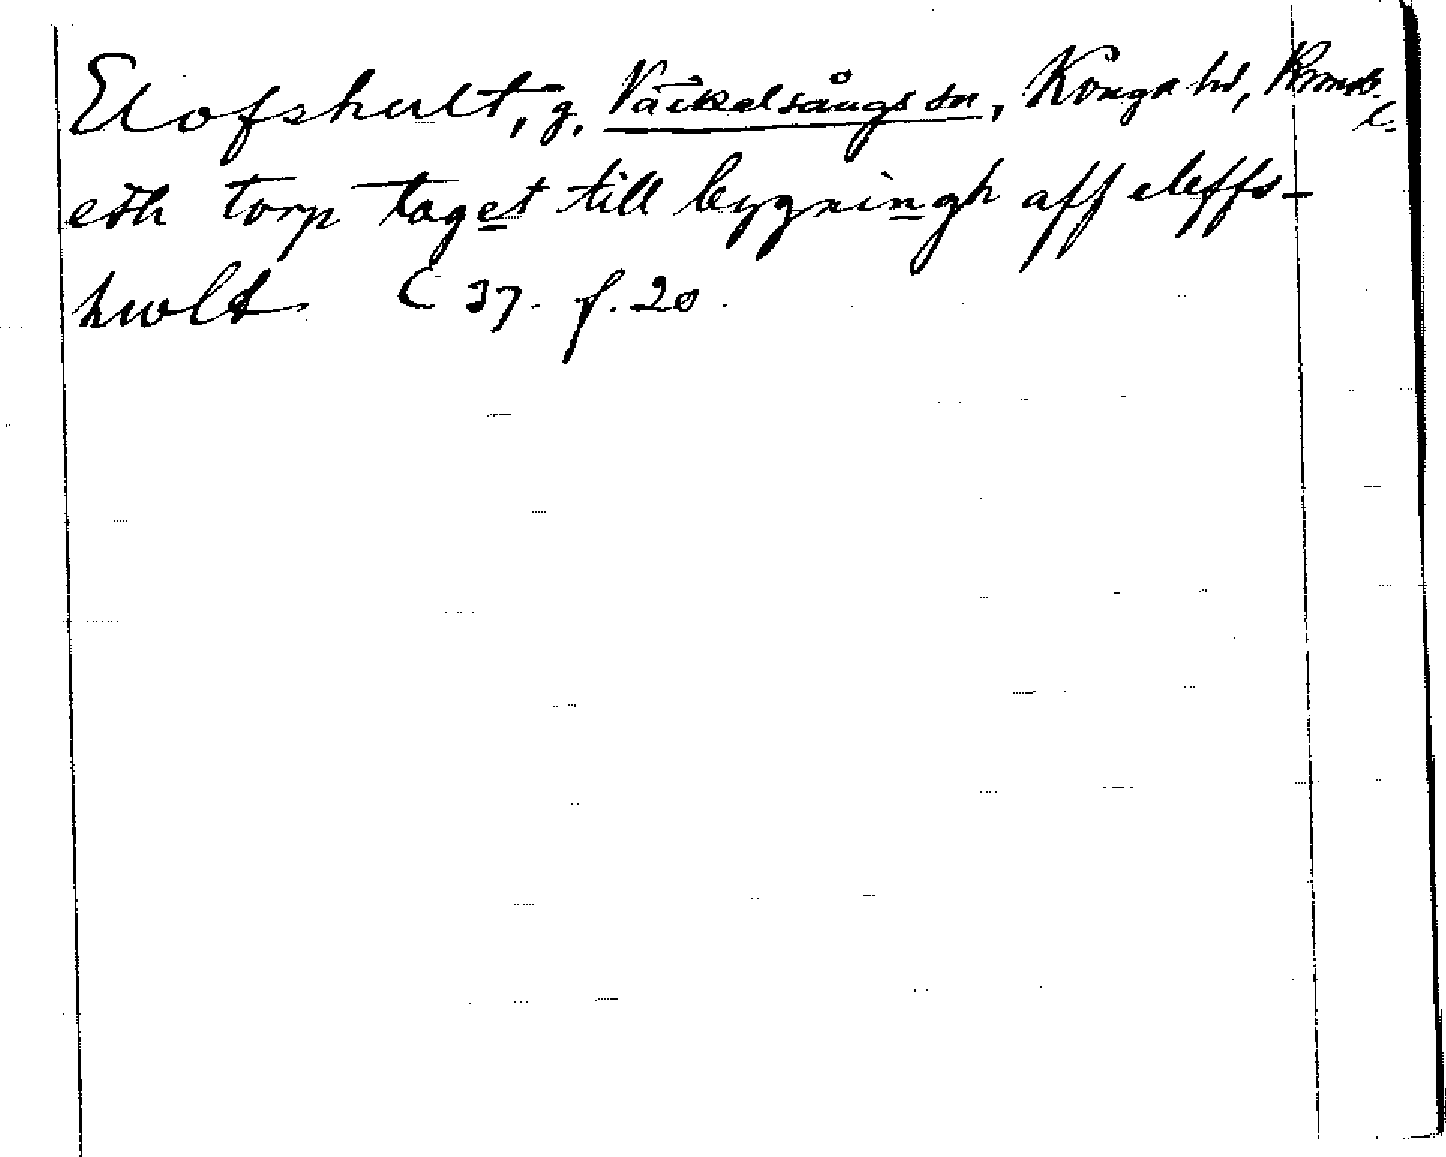 Elofshult, g. Väckelsångs sn, Konga hd, Kronob. l.
eth torp taget till bygningh aff eleffs-
hwlt C 37. f. 20.